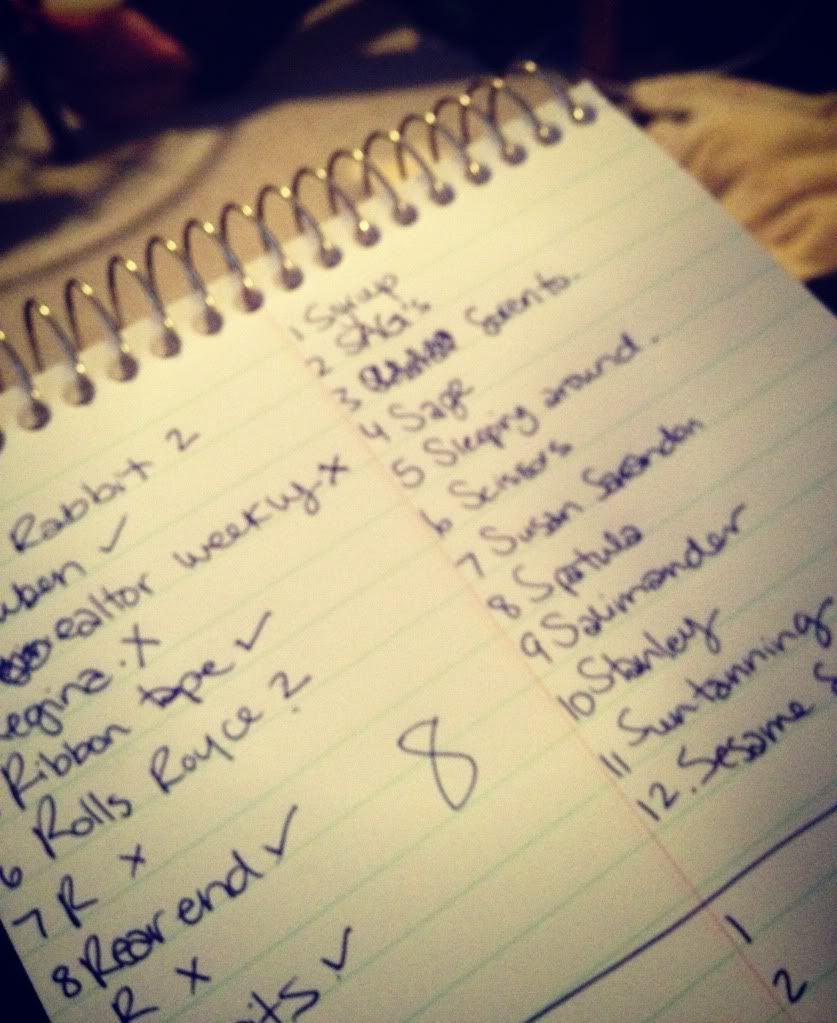 Rabbit 2
uben ✓
ealtor weekly. X
egina. X
Ribbon tape ✓
6 Rolls Royce ?
7 R X
8 Rear end ✓
R X
its ✓
8
1 Syrup
2 SAG's
3 Sorento.
4 Sage
5 Sleeping around.
6 Scissors
7 Susan Sarandon
8 Spatula
9 Salimander
10 Stanley
11 Suntanning
12. Sesame S
1
2